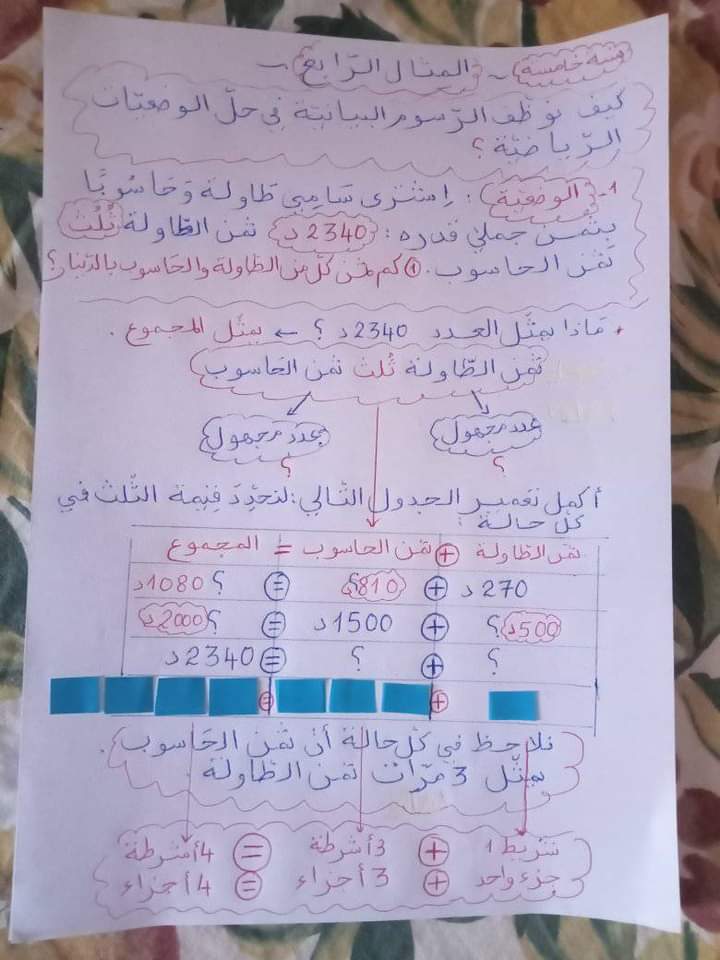 سنة خامسة ~ المثال الرّابع ~
كيف نوظّف الرّسوم البيانيّة في حلّ الوضعيّات
الرّياضيّة ؟
1- الوضعيّة : اِشترى سَامِي طَاولة وَحَاسُوبًا
بثمن جملي قدره : 2340د ثمن الطّاولة ثُلُث
ثمن الحاسوب. ① كم ثمن كلّ من الطّاولة والحَاسوب بالدّينار ؟
+ مَاذا يمثّل العدد 2340د ؟ ← يمثّل المجموع .
ثمن الطّاولة ثُلث ثمن الحَاسوب
عدد مجهول عدد مجهول
؟ ؟
أكمل تعمير الجدول التّالي : لنحَدِّدَ قِيمة الثّلث في
كلّ حالة :
ثمن الطّاولة + ثمن الحاسوب = المجموع
270 د + 810؟ = ؟ 1080د
500د ؟ + 1500د = ؟ 2000د
؟ + ؟ = 2340د
+ =
نلاحظ في كلّ حالة أنّ ثمن الحَاسوب
يمثّل 3 مرّات ثمن الطّاولة .
شريط 1 + 3 أشرطة = 4 أشرطة
جزء واحد + 3 أجزاء = 4 أجزاء